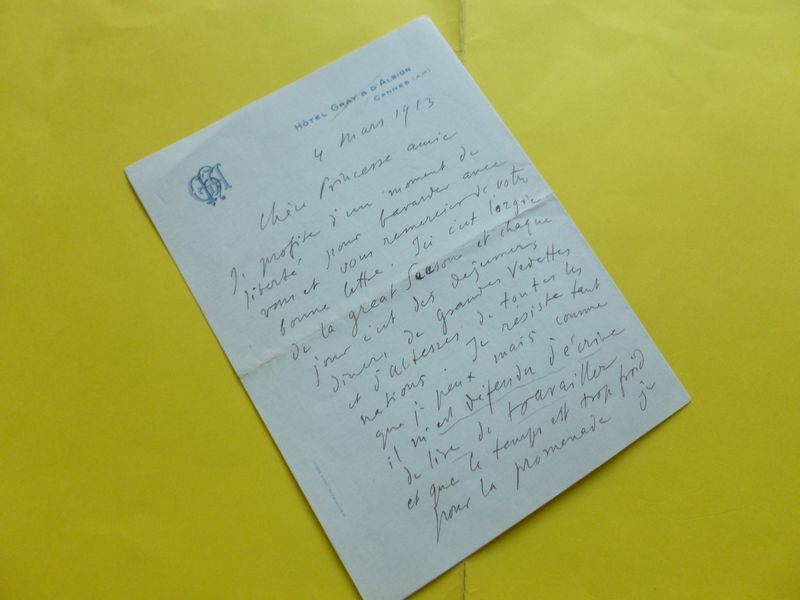 HÔTEL GRAY & D'ALBION
CANNES (A.M)
4 mars 1913
Chère Princesse amie
Je profite d'un moment de
liberté pour bavarder avec
vous et vous remercier de votre
bonne lettre. Ici c'est l'orgie
de la great season et chaque
jour c'est des déjeuners
diners, de grandes vedettes
et d'altesses de toutes les
nations. Je résiste tant
que je peux mais comme
il m'est défendu d'écrire
de lire de travailler
et que le temps est trop froid
pour la promenade je